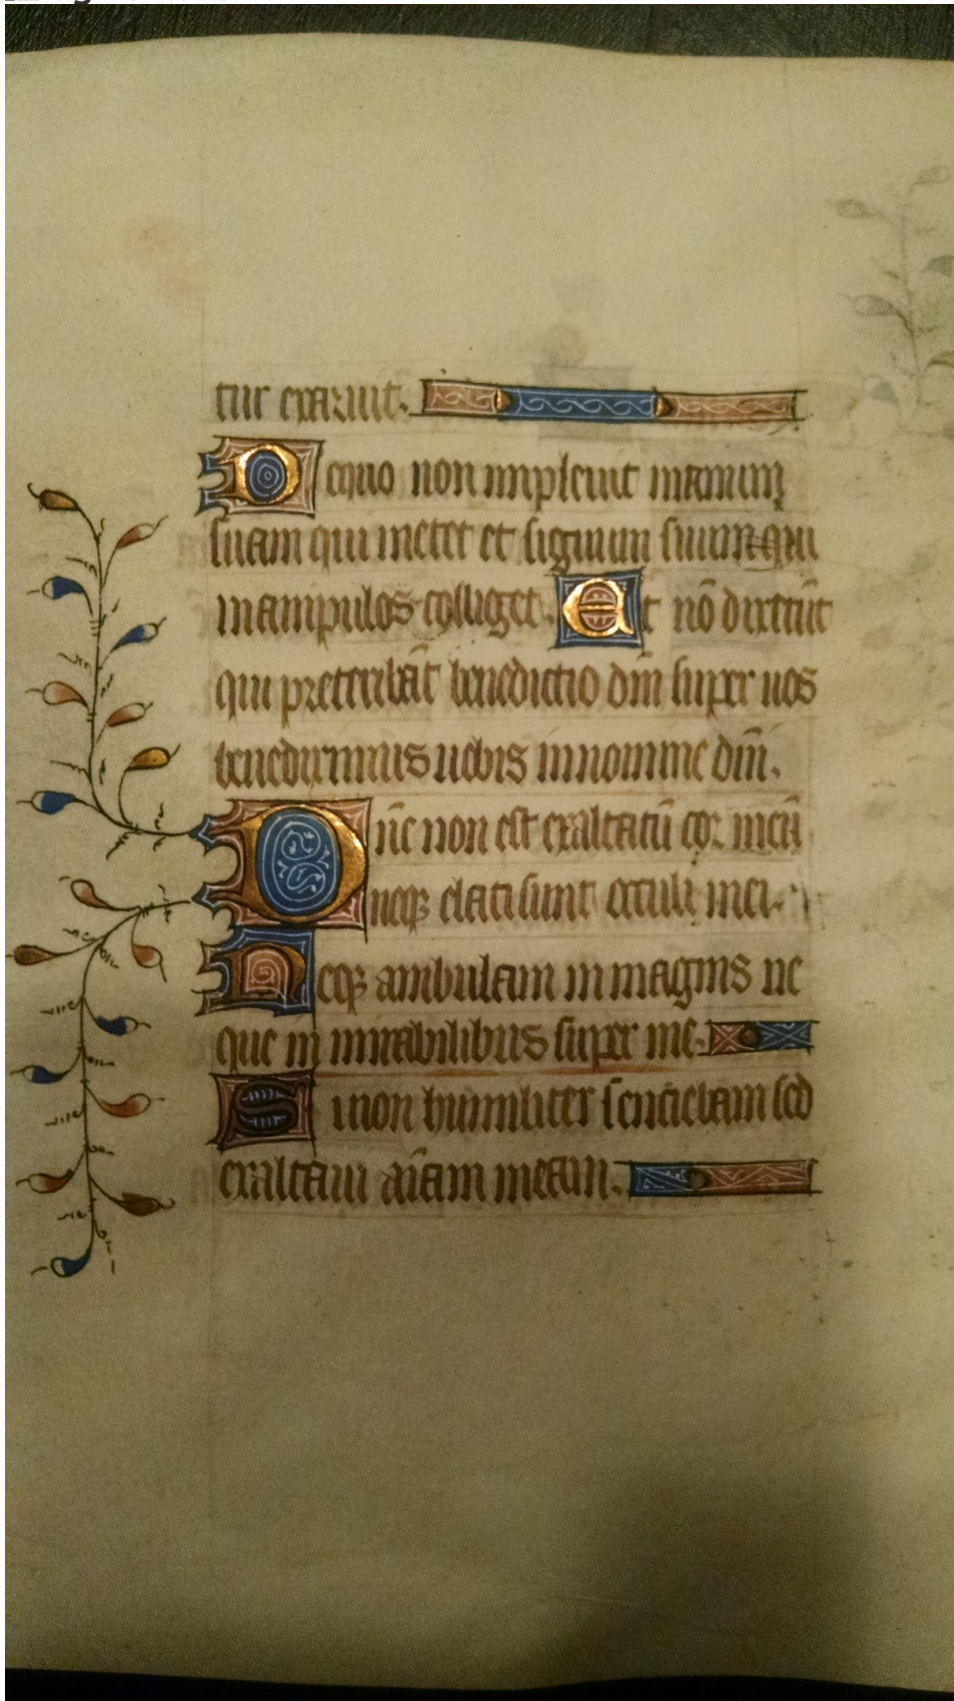 tur exaruit.
De quo non impleuit manum
suam qui metet et signum suum qui
manipulos colliget. Et nō dixerūt
qui preteribāt benedictio dm̄ super uos
benediximus uobis in nomine dm̄.
Dn̄e non est exaltatū cor meū
neqꝫ elati sunt occuli mei.
Neqꝫ ambulaui in magnis ne
que in mirabilibus super me.
Si non humiliter sentiebam sed
exaltaui aīam meam.